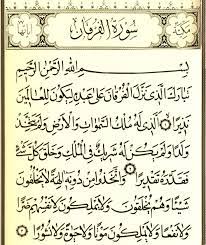 مكية سُورَةُ الْفُرْقَانِ آياتها
بِسْمِ اللهِ الرَّحْمٰنِ الرَّحِيمِ
تَبَارَكَ الَّذِي نَزَّلَ الْفُرْقَانَ عَلَى عَبْدِهِ لِيَكُونَ لِلْعَالَمِينَ
نَذِيرًا الَّذِي لَهُ مُلْكُ السَّمٰوَاتِ وَالْأَرْضِ وَلَمْ يَتَّخِذْ
وَلَدًا وَلَمْ يَكُنْ لَهُ شَرِيكٌ فِي الْمُلْكِ وَخَلَقَ كُلَّ شَيْءٍ
فَقَدَّرَهُ تَقْدِيرًا وَاتَّخَذُوا مِنْ دُونِهِ آلِهَةً لَا يَخْلُقُونَ
شَيْئًا وَهُمْ يُخْلَقُونَ وَلَا يَمْلِكُونَ لِأَنْفُسِهِمْ ضَرًّا
وَلَا نَفْعًا وَلَا يَمْلِكُونَ مَوْتًا وَلَا حَيٰوةً وَلَا نُشُورًا